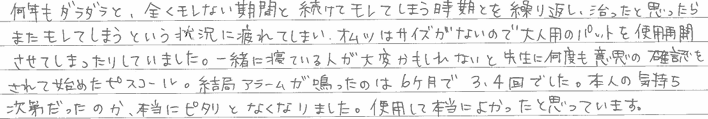 何年もダラダラと、全くモレない期間と続けてモレてしまう時期とを繰り返し、治ったと思ったら
またモレてしまうという状況に疲れてしまい、オムツはサイズがないので大人用のパットを使用再開
させてしまったりしていました。一緒に寝ている人が大変かもしれないと先生に何度も意思の確認を
されて始めたピスコール。結局アラームが鳴ったのは6ヶ月で3、4回でした。本人の気持ち
次第だったのか、本当にピタリとなくなりました。使用して本当によかったと思っています。